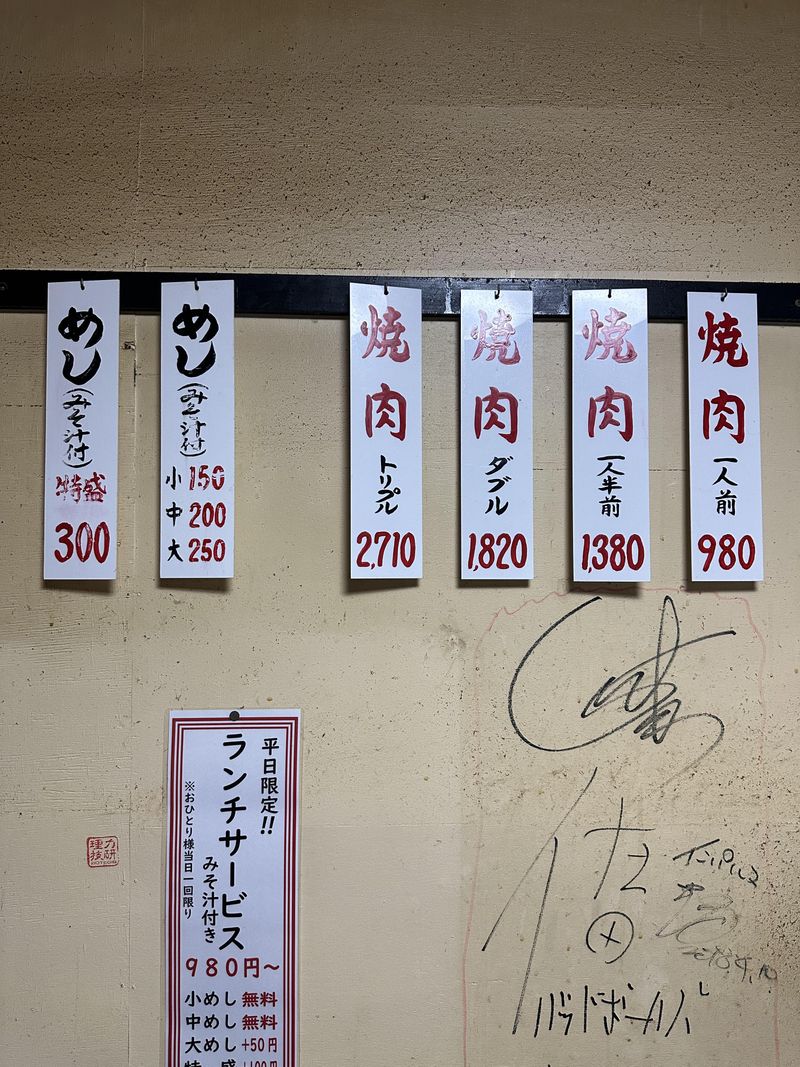 焼肉
一人前
980
焼肉
一人半前
1,380
焼肉
ダブル
1,820
焼肉
トリプル
2,710
めし
(みそ汁付)
小 150
中 200
大 250
めし
(みそ汁付)
特盛
300
平日限定!!
ランチサービス
みそ汁付き
※おひとり様当日一回限り
980円~
小めし無料
中めし無料
大めし+50円
インパルス